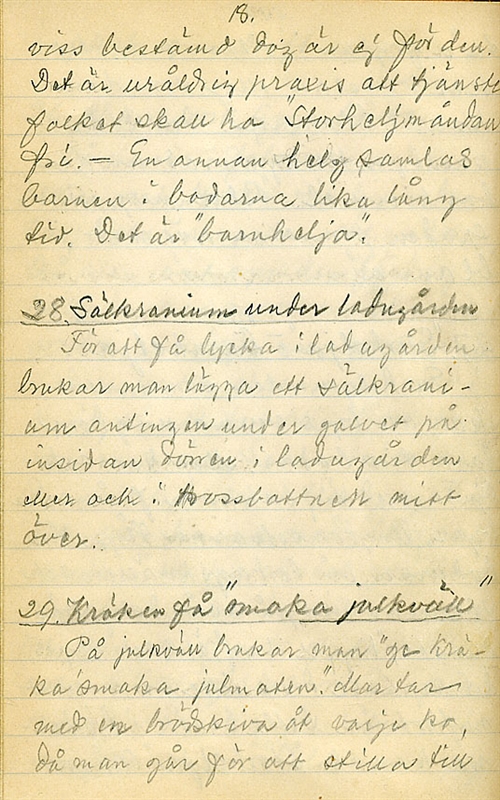 18.
viss bestämd dag är ej för den.
Det är uråldrig praxis att tjänste
folket skall ha "Storheljmåndan
fri. — En annan helg samlas
barnen i bodarna lika lång
tid. Det är "barnhelja".
28. Sälkranium under ladugården
För att få lycka i ladugården
brukar man lägga ett sälkrani-
um antingen under golvet på
insidan dörren i ladugården
eller och i trossbottnen mitt
över.
29. Kräken få "smaka julkväll"
På julkväll brukar man "ge krä-
ka smaka julmaten". Man tar
med en brödskiva åt varje ko,
då man går för att stilla till